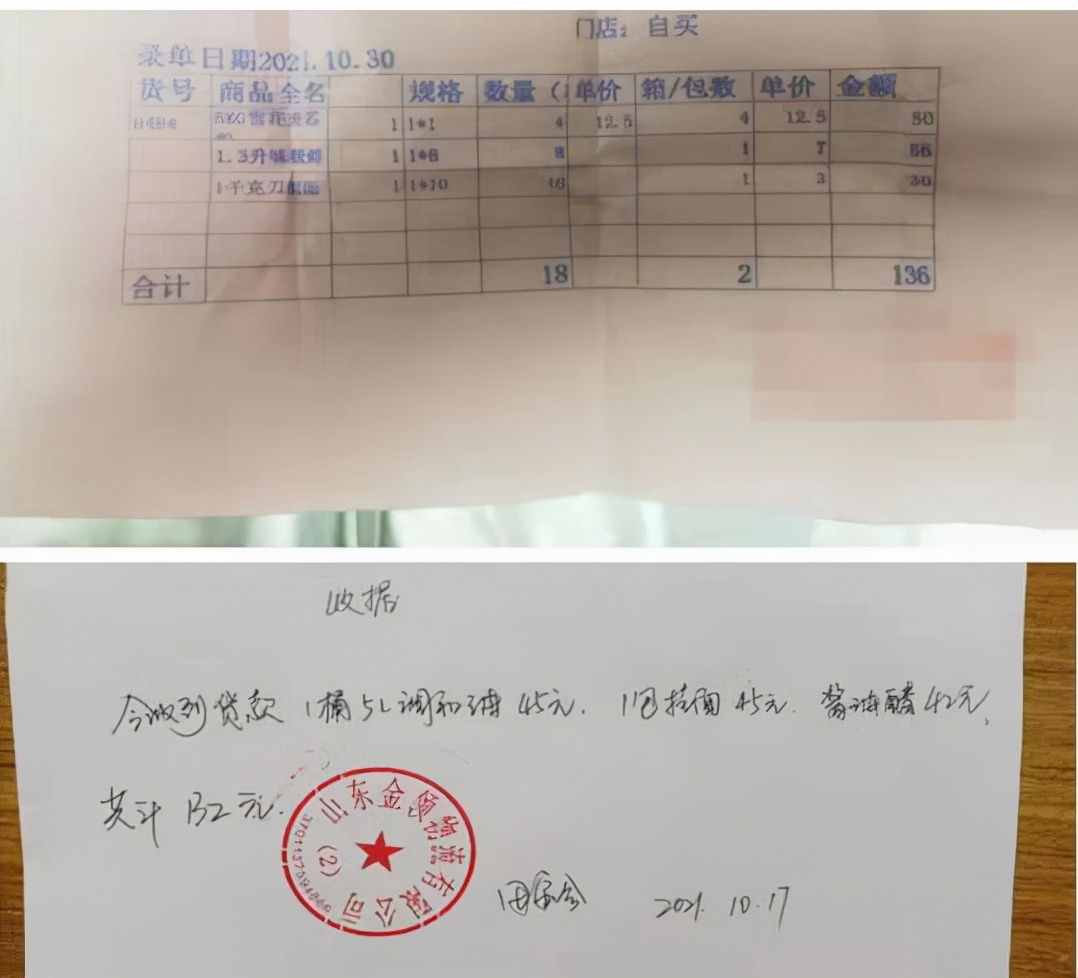 门店: 自买
录单日期2021.10.30
货号 商品全名 规格 数量 ( 单价 箱/包数 单价 金额
1 1*1 4 12.5 4 12.5 50
1 1*8 8 1 7 56
1 1*10 1 3 30
合计 18 2 136
收据
今收到货款 1桶5L调和油 45元. 1包挂面45元. 酱油醋42元,
共计 132元.
山东金 物流有限公司
(2)
2021. 10. 17